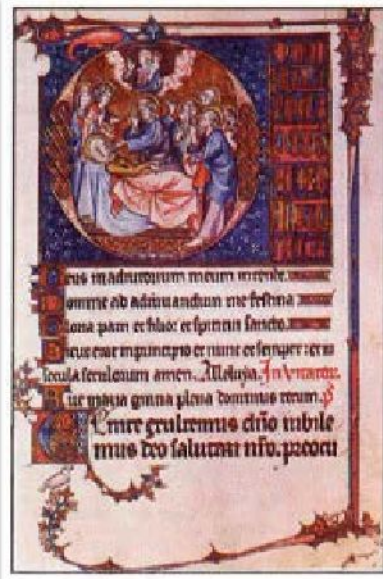 Deus in adiutorium meum intende.
Domine ad adiuuandum me festina
Gloria patri et filio: et spiritui sancto.
Sicut erat in principio et nunc et semper: et in
secula seculorum amen. Alleluya. In uitator.
Aue maria gratia plena dominus tecum. p̃
Uenite exultemus dño iubile
mus deo salutari nr̃o. preocu